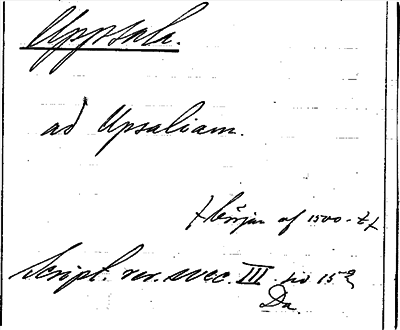 Uppsala.
ad Upsaliam.
början af 1500-t.
Script. rer. svec. III
Da.